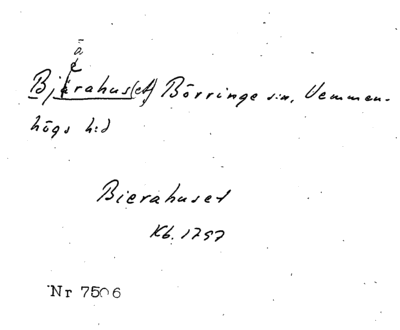 ā
Bjärahus(et) Börringe sn, Vemmen-
högs hd
Bierahuset
Kb. 1797
Nr 7506